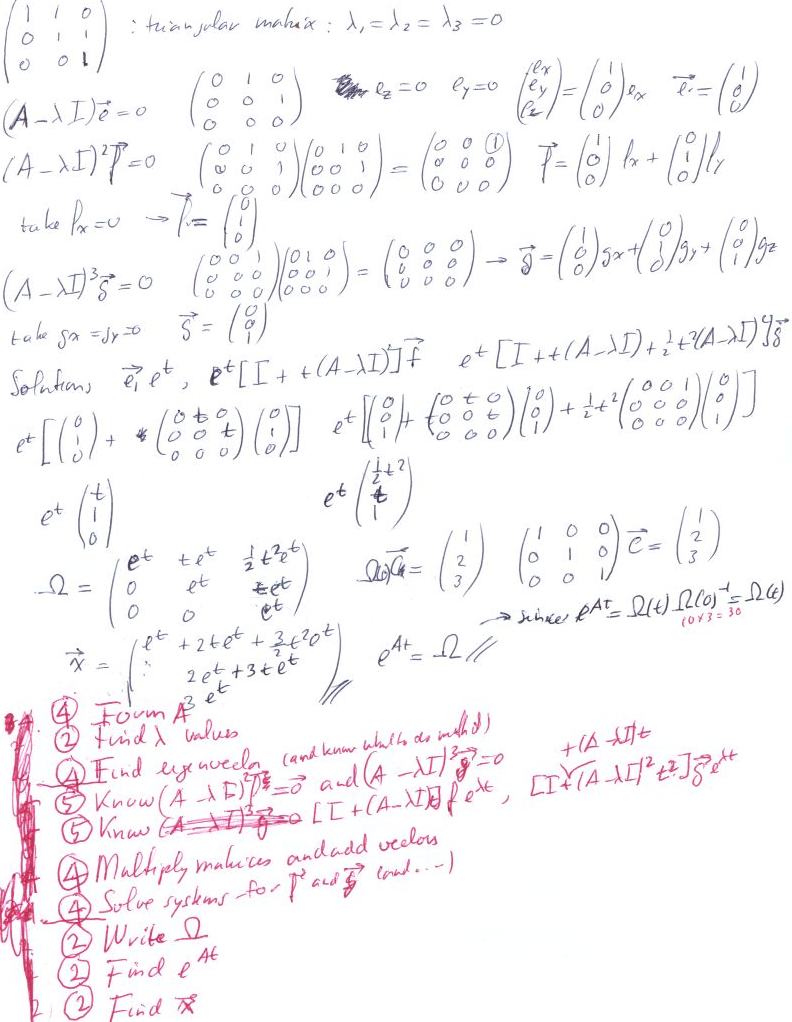 (1 1 0; 0 1 1; 0 0 1) : triangular matrix : λ₁ = λ₂ = λ₃ = 0
(A-λI)e⃗ = 0 (0 1 0; 0 0 1; 0 0 0) e_z = 0 e_y = 0 (e_x; e_y; e_z) = (1; 0; 0) e_x e⃗₁ = (1; 0; 0)
(A-λI)²f⃗ = 0 (0 1 0; 0 0 1; 0 0 0)(0 1 0; 0 0 1; 0 0 0) = (0 0 1; 0 0 0; 0 0 0) f⃗ = (1; 0; 0) f_x + (0; 1; 0) f_y
take f_x = 0 → f⃗ = (0; 1; 0)
(A-λI)³g⃗ = 0 (0 0 1; 0 0 0; 0 0 0)(0 1 0; 0 0 1; 0 0 0) = (0 0 0; 0 0 0; 0 0 0) → g⃗ = (1; 0; 0) g_x + (0; 1; 0) g_y + (0; 0; 1) g_z
take g_x = g_y = 0 g⃗ = (0; 0; 1)
Solutions e⃗₁ e^t, e^t [I + t(A-λI)] f⃗ e^t [I + t(A-λI) + ½t²(A-λI)²] g⃗
e^t [(0; 1; 0) + (0 t 0; 0 0 t; 0 0 0)(0; 1; 0)] e^t [(0; 0; 1) + (0 t 0; 0 0 t; 0 0 0)(0; 0; 1) + ½t² (0 0 1; 0 0 0; 0 0 0)(0; 0; 1)]
e^t (t; 1; 0) e^t (½t²; t; 1)
Ω = (e^t te^t ½t²e^t; 0 e^t te^t; 0 0 e^t) Ω(0)C⃗ = (1; 2; 3) (1 0 0; 0 1 0; 0 0 1) C⃗ = (1; 2; 3)
→ since e^{At} = Ω(t) Ω(0)^{-1} = Ω(t)
10 x 3 = 30
x⃗ = (e^t + 2te^t + 3/2 t²e^t; 2e^t + 3te^t; 3e^t) e^{At} = Ω //
④ Form A
② Find λ values
④ Find eigenvector (and know what to do method)
⑤ Know (A-λI)²f⃗ = 0⃗ and (A-λI)³g⃗ = 0
+(A-λI)t
⑤ Know [I + (A-λI)t] f e^{λt}, [I + (A-λI)²t²] g⃗ e^{λt}
④ Multiply matrices and add vectors
④ Solve systems for f⃗ and g⃗ (and ...)
② Write Ω
② Find e^{At}
② Find x⃗